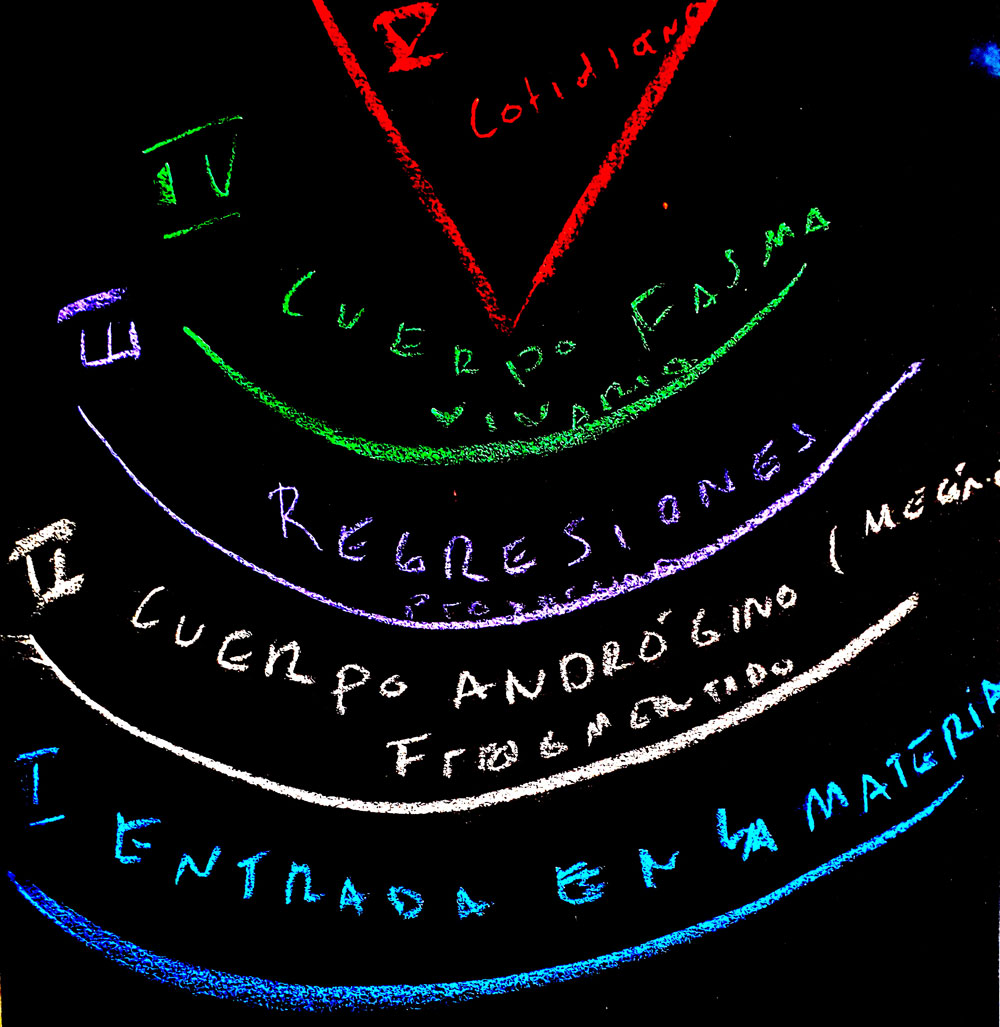 V
Cotidiano
IV
CUERPO FASMA
VIVARIO
III
REGRESIONES
II
CUERPO ANDRÓGINO (MEGIN
FRAGMENTADO
I
ENTRADA EN LA MATERIA